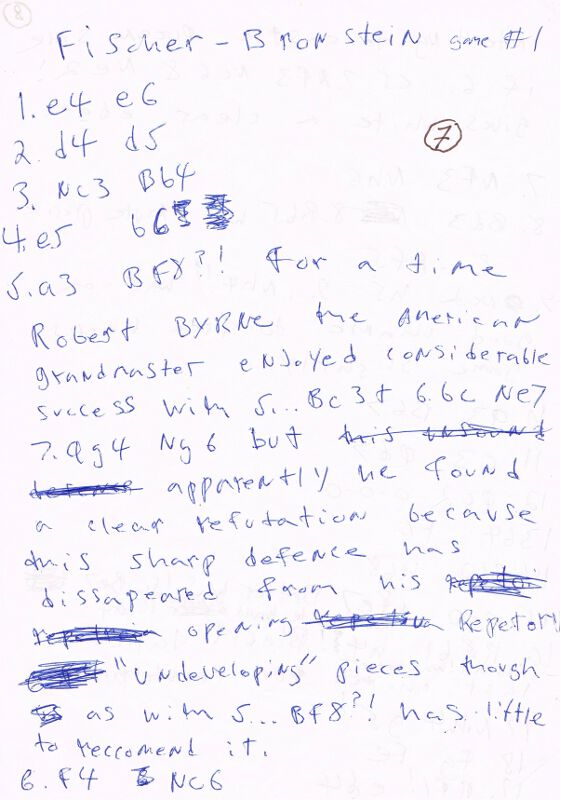 8
Fischer – Bronstein game #1
1. e4 e6
2. d4 d5
7
3. Nc3 Bb4
4. e5 b6
5. a3 BF8?! For a time
Robert BYRNE the American
grandmaster enjoyed considerable
success with 5... Bc3+ 6.bc Ne7
7. Qg4 Ng6 but this unsound
defense apparently he found
a clear refutation because
this sharp defence has
dissapeared from his
opening Repetory
"undeveloping" pieces though
as with 5... BF8?! has little
to reccomend it.
6. F4 Nc6